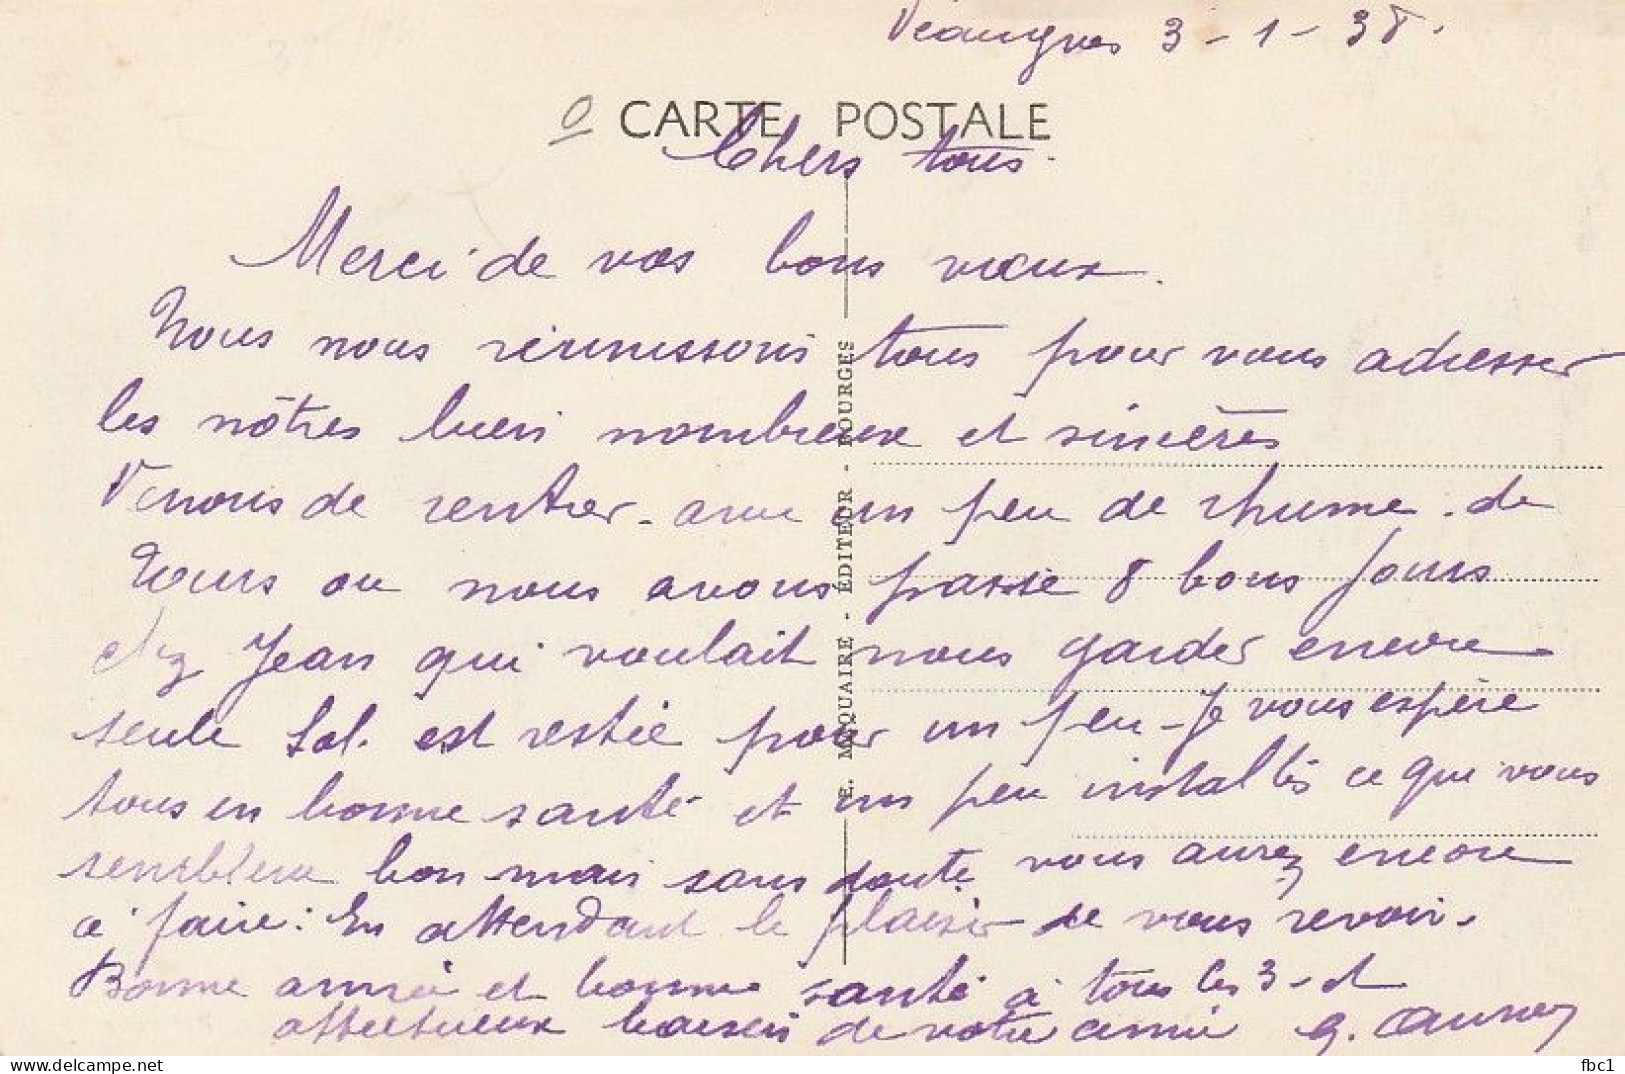 Veaugues 3-1-38.
CARTE POSTALE
Chers tous.
Merci de vos bons vœux.
Nous nous réunissons tous pour vous adresser
les nôtres bien nombreux et sincères
Venons de rentrer avec un peu de rhume. de
Tours ou nous avons passé 8 bons jours
chez Jean qui voulait nous garder encore
seule Sol. est restée pour un peu - Je vous espère
tous en bonne santé et un peu installés ce qui vous
semblera bon mais sans doute vous aurez encore
à faire : En attendant le plaisir de vous revoir.
Bonne année et bonne santé à tous les 3 - et
affectueux baisers de votre amie G.
E. MAQUAIRE - ÉDITEUR - BOURGES
fbc1